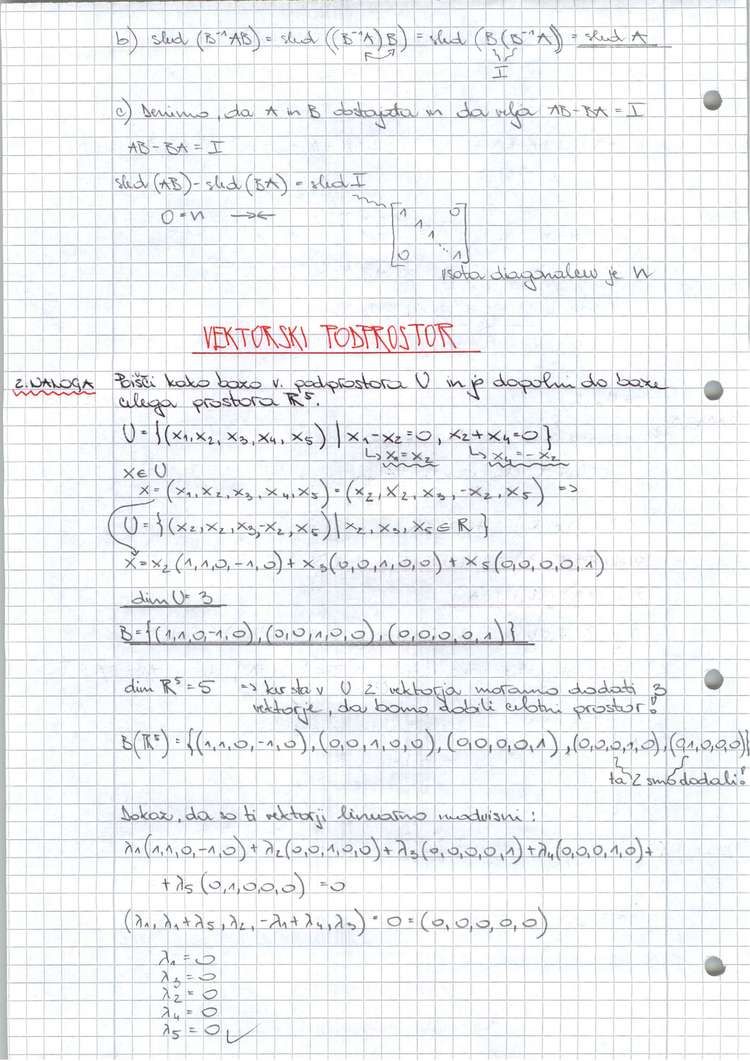 b) sled (B⁻¹AB) = sled ((B⁻¹A)B) = sled (B(B⁻¹A)) = sled A
I
c) Denimo, da A in B obstajata in da velja AB-BA = I
AB-BA = I
sled (AB) - sled (BA) = sled I
0 = n →←
1 0
1
1
⋱
0 1
vsota diagonalcev je n
VEKTORSKI PODPROSTOR
2. NALOGA Poišči kako bazo v. podprostora U in jo dopolni do baze
celega prostora ℝ⁵.
U = {(x₁, x₂, x₃, x₄, x₅) | x₁-x₂=0, x₂+x₄=0}
↳ x₁=x₂ ↳ x₄=-x₂
x∈U
x = (x₁, x₂, x₃, x₄, x₅) = (x₂, x₂, x₃, -x₂, x₅) =>
U = {(x₂, x₂, x₃, -x₂, x₅) | x₂, x₃, x₅ ∈ ℝ}
x = x₂(1,1,0,-1,0) + x₃(0,0,1,0,0) + x₅(0,0,0,0,1)
dim U = 3
B = {(1,1,0,-1,0), (0,0,1,0,0), (0,0,0,0,1)}
dim ℝ⁵ = 5 => ker sta v U 2 vektorja moramo dodati 3
vektorje, da bomo dobili celotni prostor!
B(ℝ⁵) = {(1,1,0,-1,0), (0,0,1,0,0), (0,0,0,0,1), (0,0,0,1,0), (0,1,0,0,0)}
ta 2 smo dodali!
Dokaz, da so ti vektorji linearno neodvisni:
λ₁(1,1,0,-1,0) + λ₂(0,0,1,0,0) + λ₃(0,0,0,0,1) + λ₄(0,0,0,1,0) +
+ λ₅(0,1,0,0,0) = 0
(λ₁, λ₁+λ₅, λ₂, -λ₁+λ₄, λ₃) = 0 = (0,0,0,0,0)
λ₁ = 0
λ₃ = 0
λ₂ = 0
λ₄ = 0
λ₅ = 0 ✓